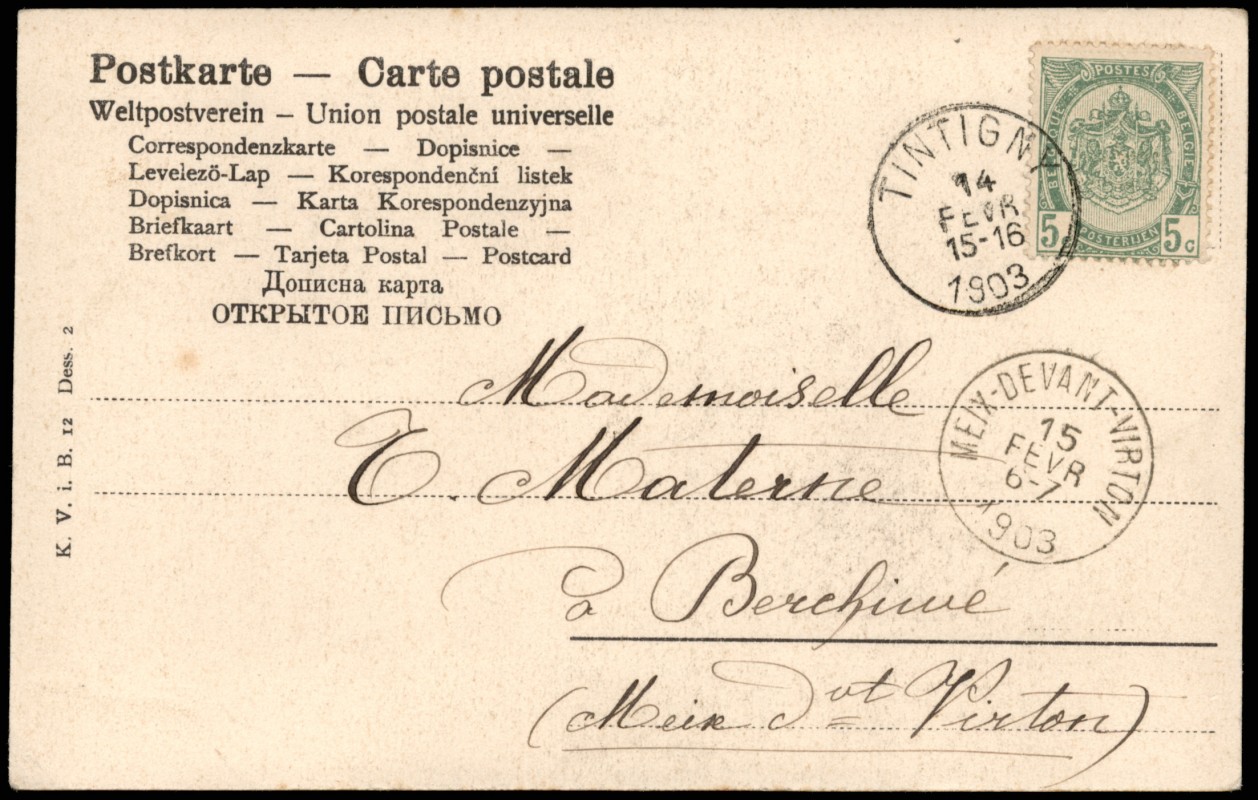 Postkarte — Carte postale
Weltpostverein – Union postale universelle
Correspondenzkarte — Dopisnice —
Levelezö-Lap — Korespondenční listek
Dopisnica — Karta Korespondenzyjna
Briefkaart — Cartolina Postale —
Brefkort — Tarjeta Postal — Postcard
Дописна карта
ОТКРЫТОЕ ПИСЬМО
POSTES
BELGIQUE
BELGIË
5c
POSTERIJEN
5c
TINTIGNY
14
FEVR
15-16
1903
MEIX-DEVANT-VIRTON
15
FEVR
6-7
1903
Mademoiselle
E. Materne
à Berchiwé
(Meix dvt Virton)
K. V. i. B. 12 Dess. 2